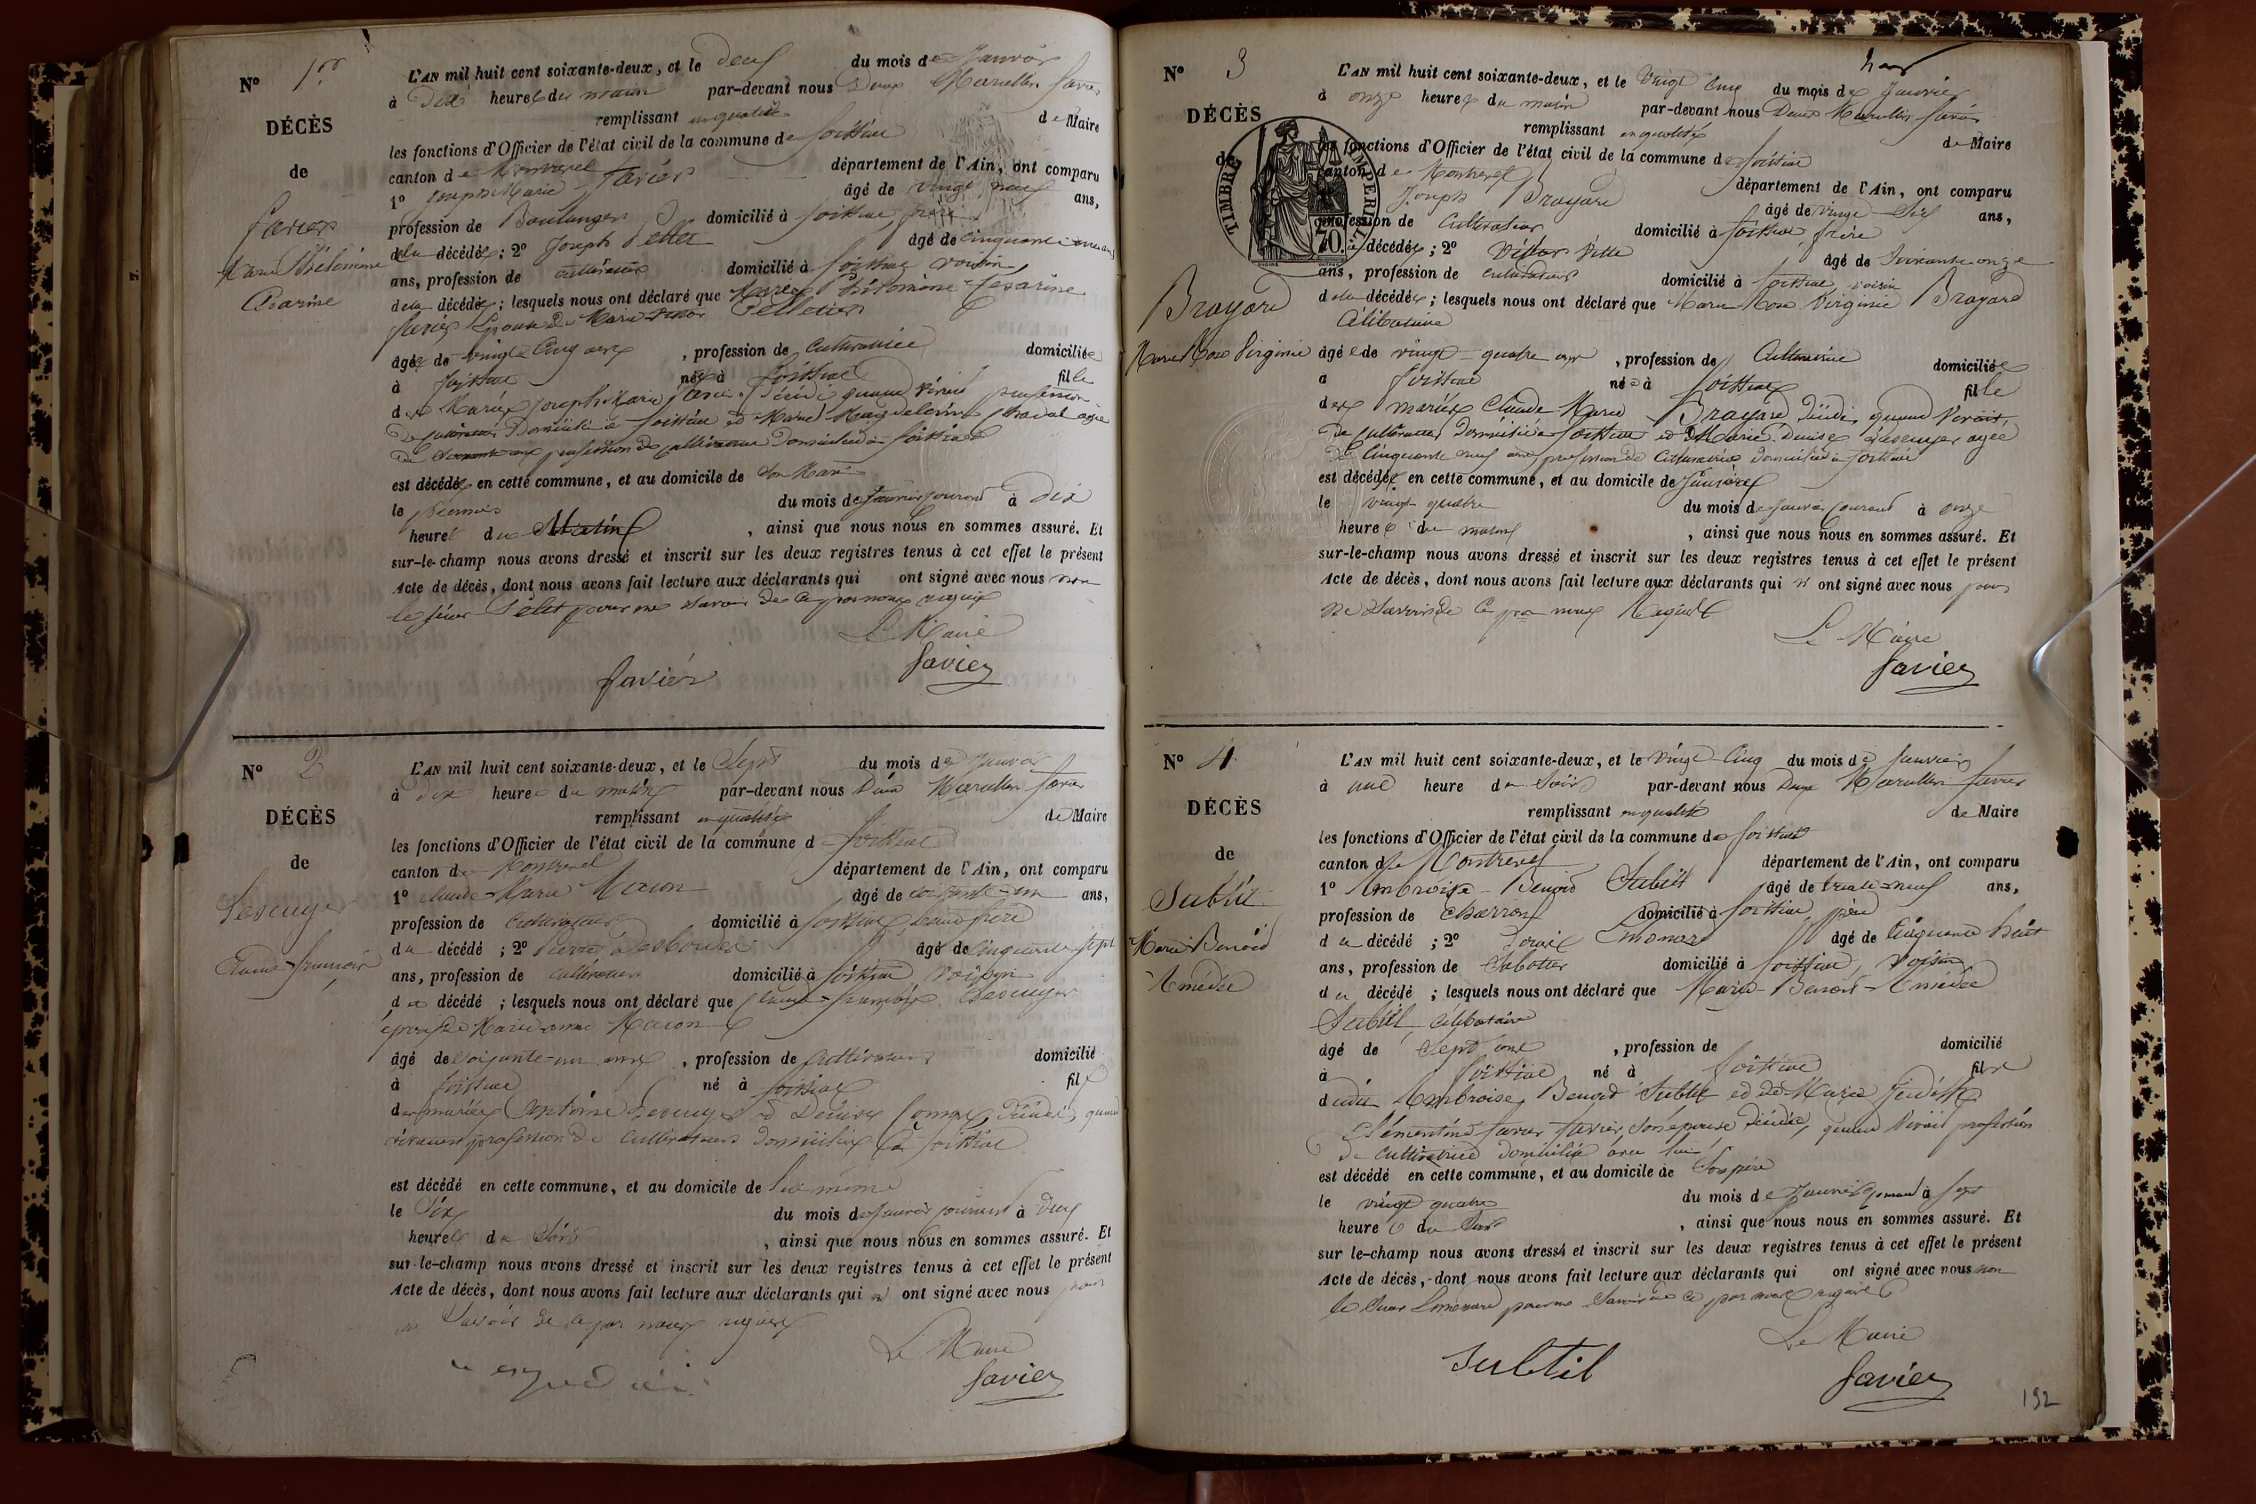 N° 1er
L'AN mil huit cent soixante-deux, et le deux du mois de Janvier
à dix heures du matin par-devant nous Marcellin Favier
DÉCÈS
remplissant en qualité de Maire
les fonctions d'Officier de l'état civil de la commune de Foissiat
de
canton de Montrevel département de l'Ain, ont comparu
1° Joseph Marie Favier âgé de vingt neuf ans,
Favier
profession de Boulanger domicilié à Foissiat, frère
Marie Philomène
de la décédée ; 2° Joseph Pellet âgé de cinquante
ans, profession de cultivateur domicilié à Foissiat voisin
Césarine
de la décédée ; lesquels nous ont déclaré que Marie Philomène Césarine
Favier Epouse de Marie Pelletier
âgée de vingt cinq ans , profession de Cultivatrice domiciliée
à Foissiat née à Foissiat fille
des Mariés Joseph Marie Favier décédé quand vivait profession
de cultivateur Domicilié à Foissiat et Marie Magdeleine agée
de profession de cultivatrice Domiciliée à Foissiat
est décédée en cette commune, et au domicile de Son Mari
le premier du mois de Janvier courant à Dix
heure du Matin , ainsi que nous nous en sommes assuré. Et
sur-le-champ nous avons dressé et inscrit sur les deux registres tenus à cet effet le présent
Acte de décès, dont nous avons fait lecture aux déclarants qui ont signé avec nous non
le sieur Pellet pour ne savoir de ce par nous requis
Le Maire
Favier
Favier
N° 2
L'AN mil huit cent soixante-deux, et le Sept du mois de Janvier
à dix heures du matin par-devant nous Marcellin Favier
DÉCÈS
remplissant en qualité de Maire
les fonctions d'Officier de l'état civil de la commune de Foissiat
de
canton de Montrevel département de l'Ain, ont comparu
1° Claude Marie Macon âgé de soixante-un ans,
profession de Cultivateur domicilié à Foissiat, beau frère
du décédé ; 2° Pierre Desbouis âgé de cinquante sept
ans, profession de cultivateur domicilié à Foissiat Voisin
du décédé ; lesquels nous ont déclaré que
époux de Marie Macon
âgé de soixante-un ans , profession de Cultivateur domicilié
à Foissiat né à Foissiat fils
des mariés Antoine décédés quand
vivaient profession de Cultivateurs domiciliés à Foissiat
est décédé en cette commune, et au domicile de Lui même
le Six du mois de Janvier courant à Deux
heure du Soir , ainsi que nous nous en sommes assuré. Et
sur-le-champ nous avons dressé et inscrit sur les deux registres tenus à cet effet le présent
Acte de décès, dont nous avons fait lecture aux déclarants qui n' ont signé avec nous pour
ne Savoir de ce par nous requis
Le Maire
Favier
N° 3
L'AN mil huit cent soixante-deux, et le Vingt Cinq du mois de Janvier
à onze heures du matin par-devant nous Marcellin Favier
DÉCÈS
remplissant en qualité de Maire
les fonctions d'Officier de l'état civil de la commune de Foissiat
de
TIMBRE IMPERIAL
70
canton de Montrevel département de l'Ain, ont comparu
Joseph Brayard âgé de vingt-six ans,
profession de Cultivateur domicilié à Foissiat, frère
décédée ; 2° Victor âgé de Soixante onze
ans, profession de cultivateur domicilié à Foissiat voisin
Brayard
de la décédée ; lesquels nous ont déclaré que Marie Rose Virginie Brayard
Célibataire
Marie Rose Virginie
âgée de vingt-quatre ans , profession de Cultivatrice domiciliée
à Foissiat née à Foissiat fille
des mariés Claude Marie Brayard Décédé quand Vivait,
de cultivateur domicilié à Foissiat et Marie Denise agée
de Cinquante neuf ans, profession de Cultivatrice domiciliée à Foissiat
est décédée en cette commune, et au domicile de
le vingt quatre du mois de Janvier courant à onze
heures du matin , ainsi que nous nous en sommes assuré. Et
sur-le-champ nous avons dressé et inscrit sur les deux registres tenus à cet effet le présent
Acte de décès, dont nous avons fait lecture aux déclarants qui n' ont signé avec nous pour
ne Savoir de ce par nous Requis
Le Maire
Favier
N° 4
L'AN mil huit cent soixante-deux, et le Vingt-Cinq du mois de Janvier
à une heure du Soir par-devant nous Marcellin Favier
DÉCÈS
remplissant en qualité de Maire
les fonctions d'Officier de l'état civil de la commune de Foissiat
de
canton de Montrevel département de l'Ain, ont comparu
Subtil
1° Ambroise-Benoit Subtil âgé de trente-neuf ans,
profession de charron domicilié à Foissiat père
Marie Benoit
du décédé ; 2° Louis âgé de Cinquante huit
ans, profession de Sabotier domicilié à Foissiat, Voisin
Amédée
du décédé ; lesquels nous ont déclaré que Marie-Benoit-Amédée
Subtil, célibataire
âgé de Sept ans , profession de domicilié
à Foissiat né à Foissiat fils
dudit Ambroise Benoit Subtil et de Marie
Clémentine Favier, son épouse décédée, quand Vivait profession
de cultivatrice domiciliée avec lui
est décédé en cette commune, et au domicile de Son père
le vingt quatre du mois de Janvier courant à Sept
heures du Soir , ainsi que nous nous en sommes assuré. Et
sur le-champ nous avons dressé et inscrit sur les deux registres tenus à cet effet le présent
Acte de décès, dont nous avons fait lecture aux déclarants qui ont signé avec nous non
le Sieur pour ne Savoir de ce par nous requis
Le Maire
Subtil
Favier
192